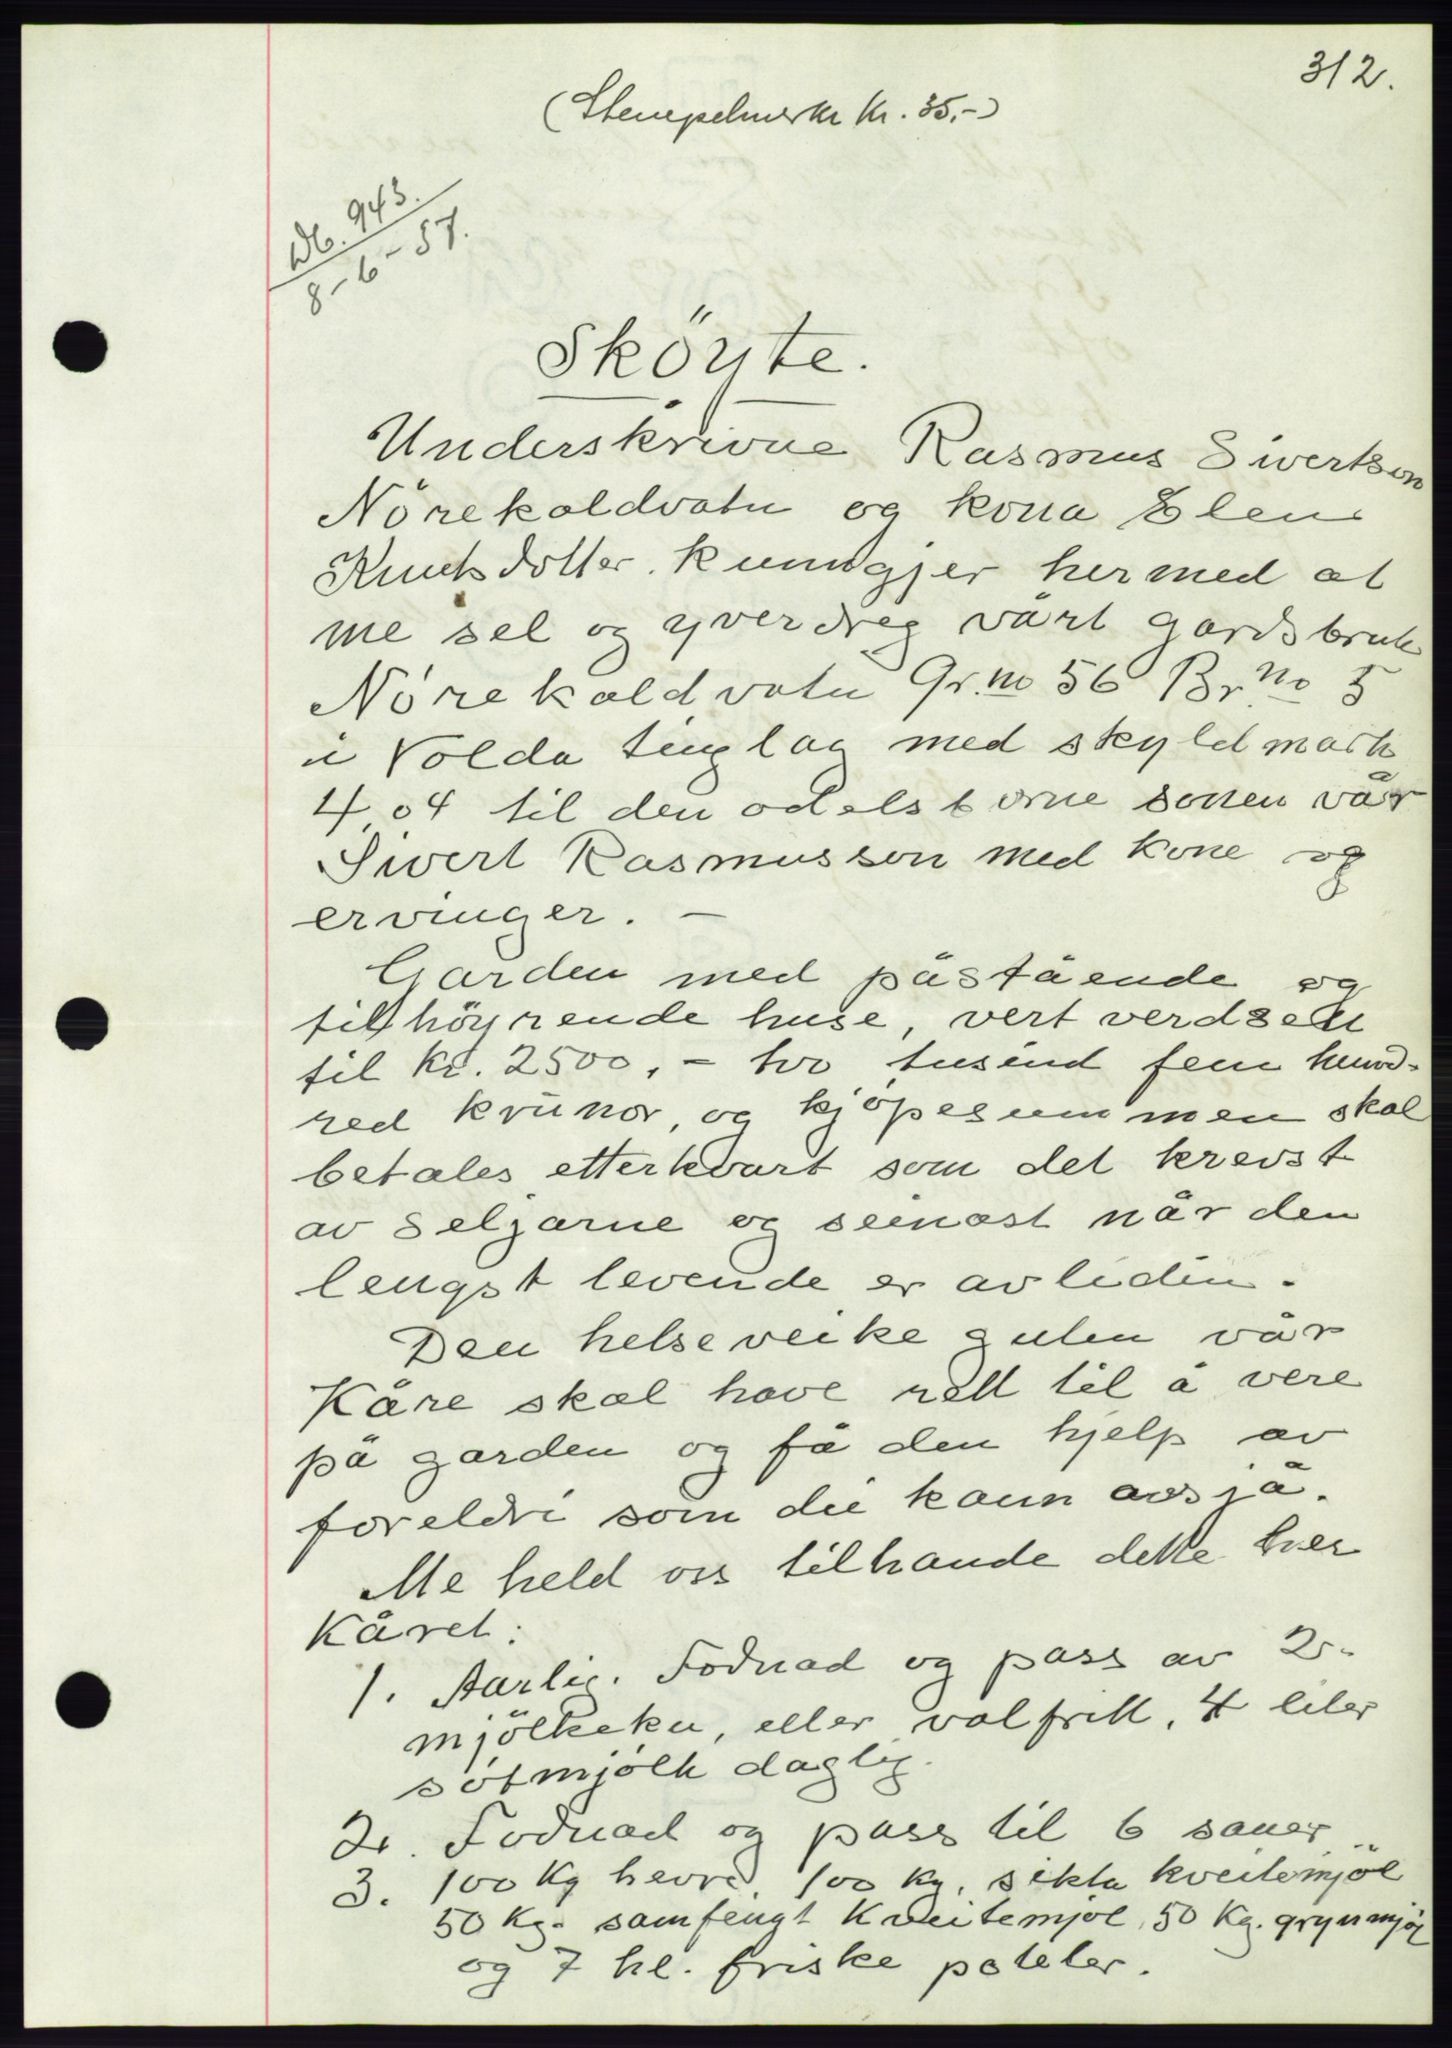 312.
(Stempelmerke kr. 35,-)
Db. 943.
8-6-57.
Sköyte.
Underskrivne Rasmus Sivertson
Nörekaldvatn og kona Elen
Knutsdotter. kunngjer hermed at
me sel og yverdreg vårt gardsbruk
Nörekaldvatn Gr.no 56 Br.no 5
i Volda tinglag med skyldmark
4,04 til den odelsborne sonen vår
Sivert Rasmusson med kone og
ervinger. —
Garden med påstående og
tilhöyrende huse, vert verdsett
til kr. 2500,- to tusind fem hund-
red krunor, og kjöpesummen skal
betales etterkvart som det krevst
av seljarne og seinast når den
lengst levende er avlidin.
Den helseveike guten vår
Kåre skal have rett til å vere
på garden og få den hjelp av
foreldri som dei kann avsjå.
Me held oss tilhande dette her
kåret:
1. Aarlig. Fodnad og pass av 2.
mjölkeku, eller valfritt, 4 liter
sötmjölk daglig.
2. Fodnad og pass til 6 sauer
3. 100 Kg havre, 100 kg. sikta kveitemjöl
50 Kg. samfengt Kveitemjöl, 50 Kg. grynmjöl
og 7 hl. friske poteter.